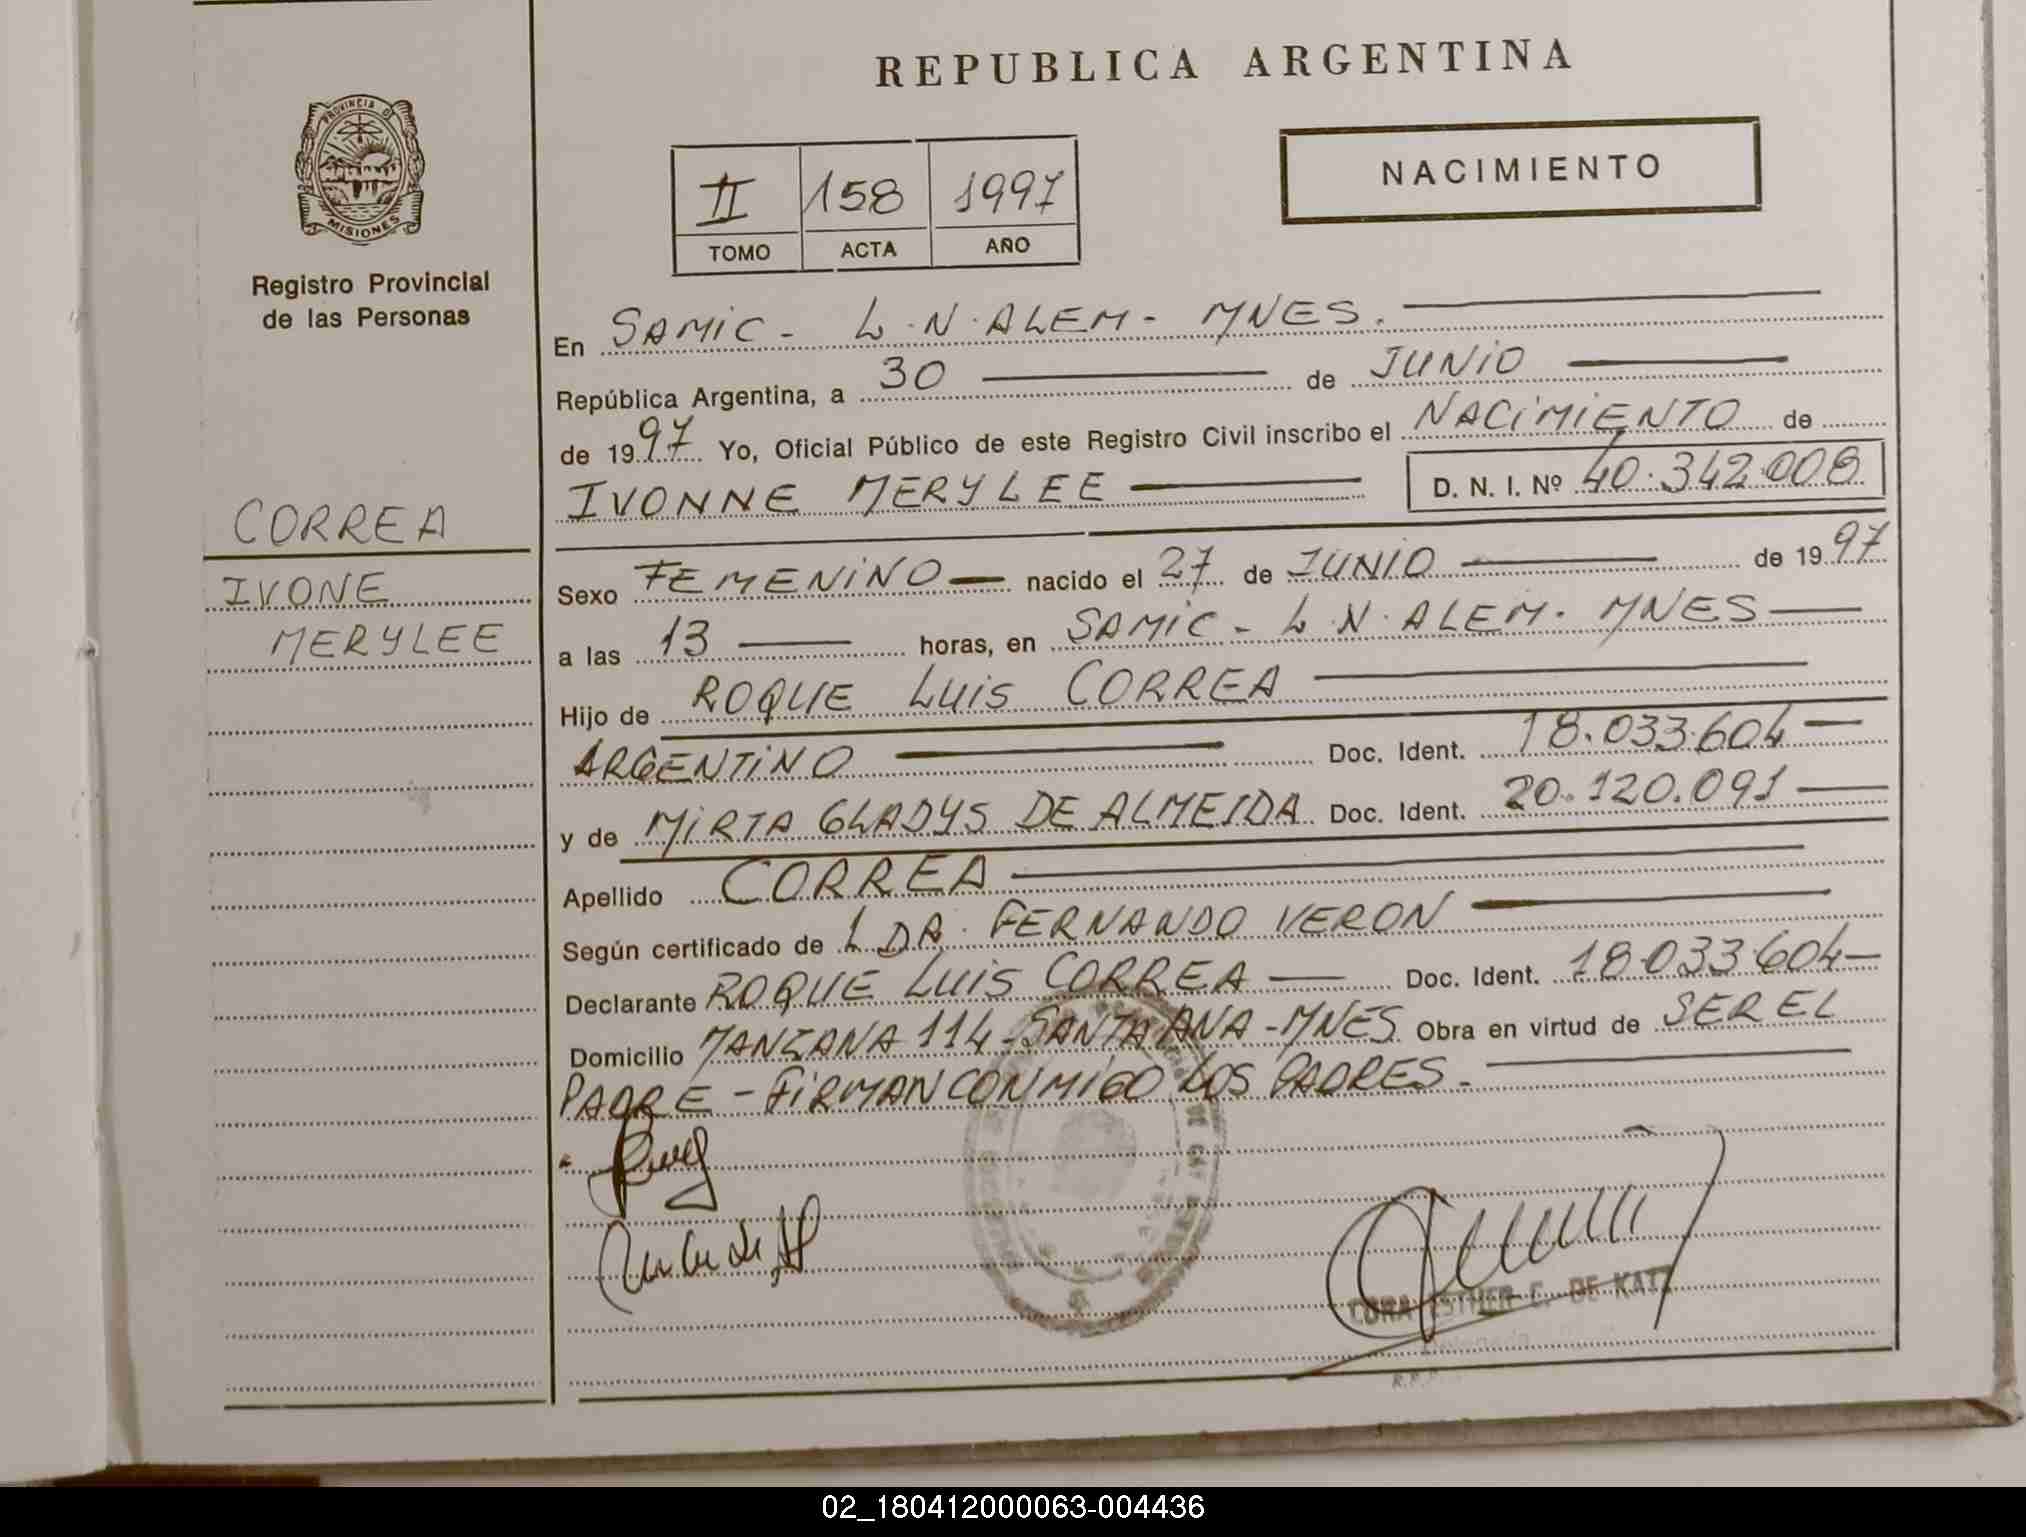 REPUBLICA ARGENTINA
PROVINCIA DE
MISIONES
Registro Provincial
de las Personas
II 158 1997
TOMO ACTA AÑO
NACIMIENTO
CORREA
IVONE
MERYLEE
En SAMIC - L.N.ALEM - MNES.
República Argentina, a 30 de JUNIO
de 1997 Yo, Oficial Público de este Registro Civil inscribo el NACIMIENTO de
IVONNE MERYLEE D. N. I. Nº 40.342.008
Sexo FEMENINO nacido el 27 de JUNIO de 1997
a las 13 horas, en SAMIC - L.N.ALEM - MNES
Hijo de ROQUE LUIS CORREA
ARGENTINO Doc. Ident. 18.033.604
y de MIRTA GLADYS DE ALMEIDA Doc. Ident. 20.120.091
Apellido CORREA
Según certificado de FERNANDO VERON
Declarante ROQUE LUIS CORREA Doc. Ident. 18.033.604
Domicilio MANZANA 114 - SANTA ANA - MNES Obra en virtud de SER EL
PADRE - FIRMAN CONMIGO LOS PADRES.
CORA ESTHER C. DE KATZ
02_180412000063-004436